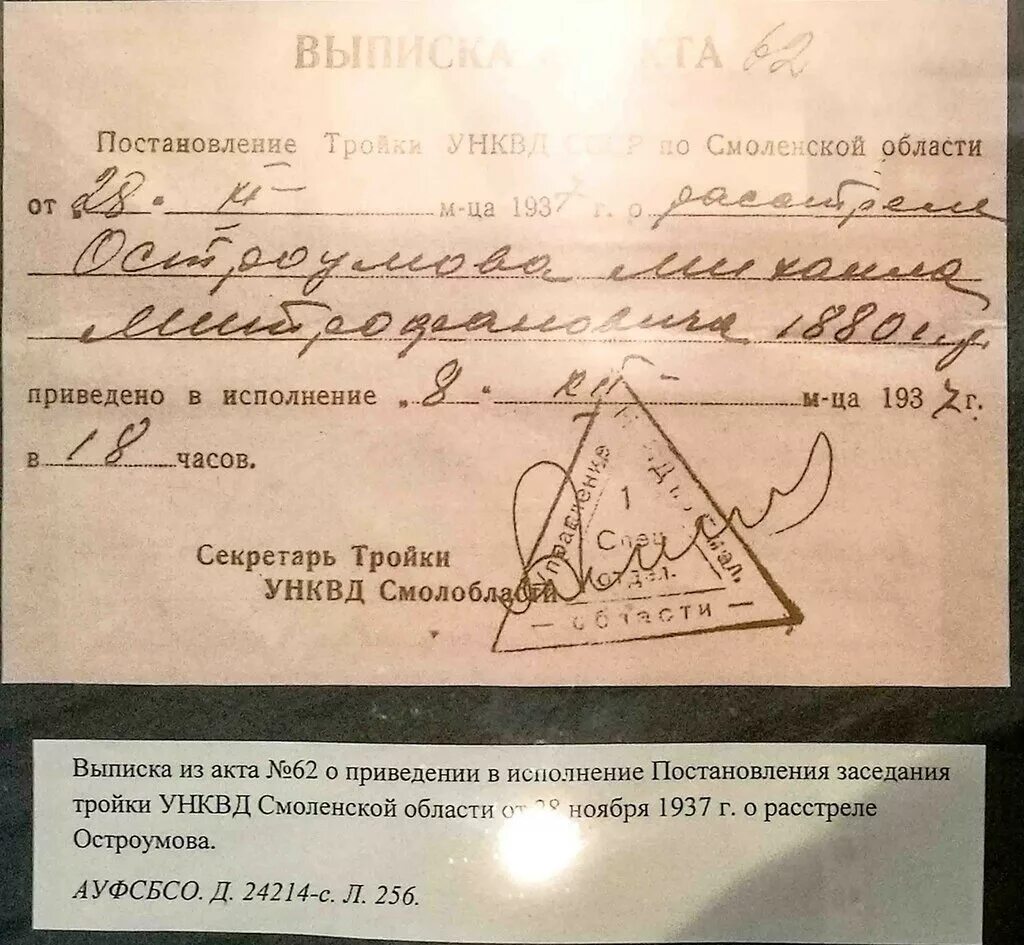 ВЫПИСКА АКТА 62
Постановление Тройки УНКВД СССР по Смоленской области
от „28" XI м-ца 1937 г. о расстреле
Остроумова Михаила
Митрофановича 1880 г.р.
приведено в исполнение „8" XII м-ца 1937 г.
в 18 часов.
Секретарь Тройки
УНКВД Смолобласти
Управление
НКВД Смол.
1
Спец
отдел.
— области —
Выписка из акта №62 о приведении в исполнение Постановления заседания
тройки УНКВД Смоленской области от 28 ноября 1937 г. о расстреле
Остроумова.
АУФСБСО. Д. 24214-с. Л. 256.